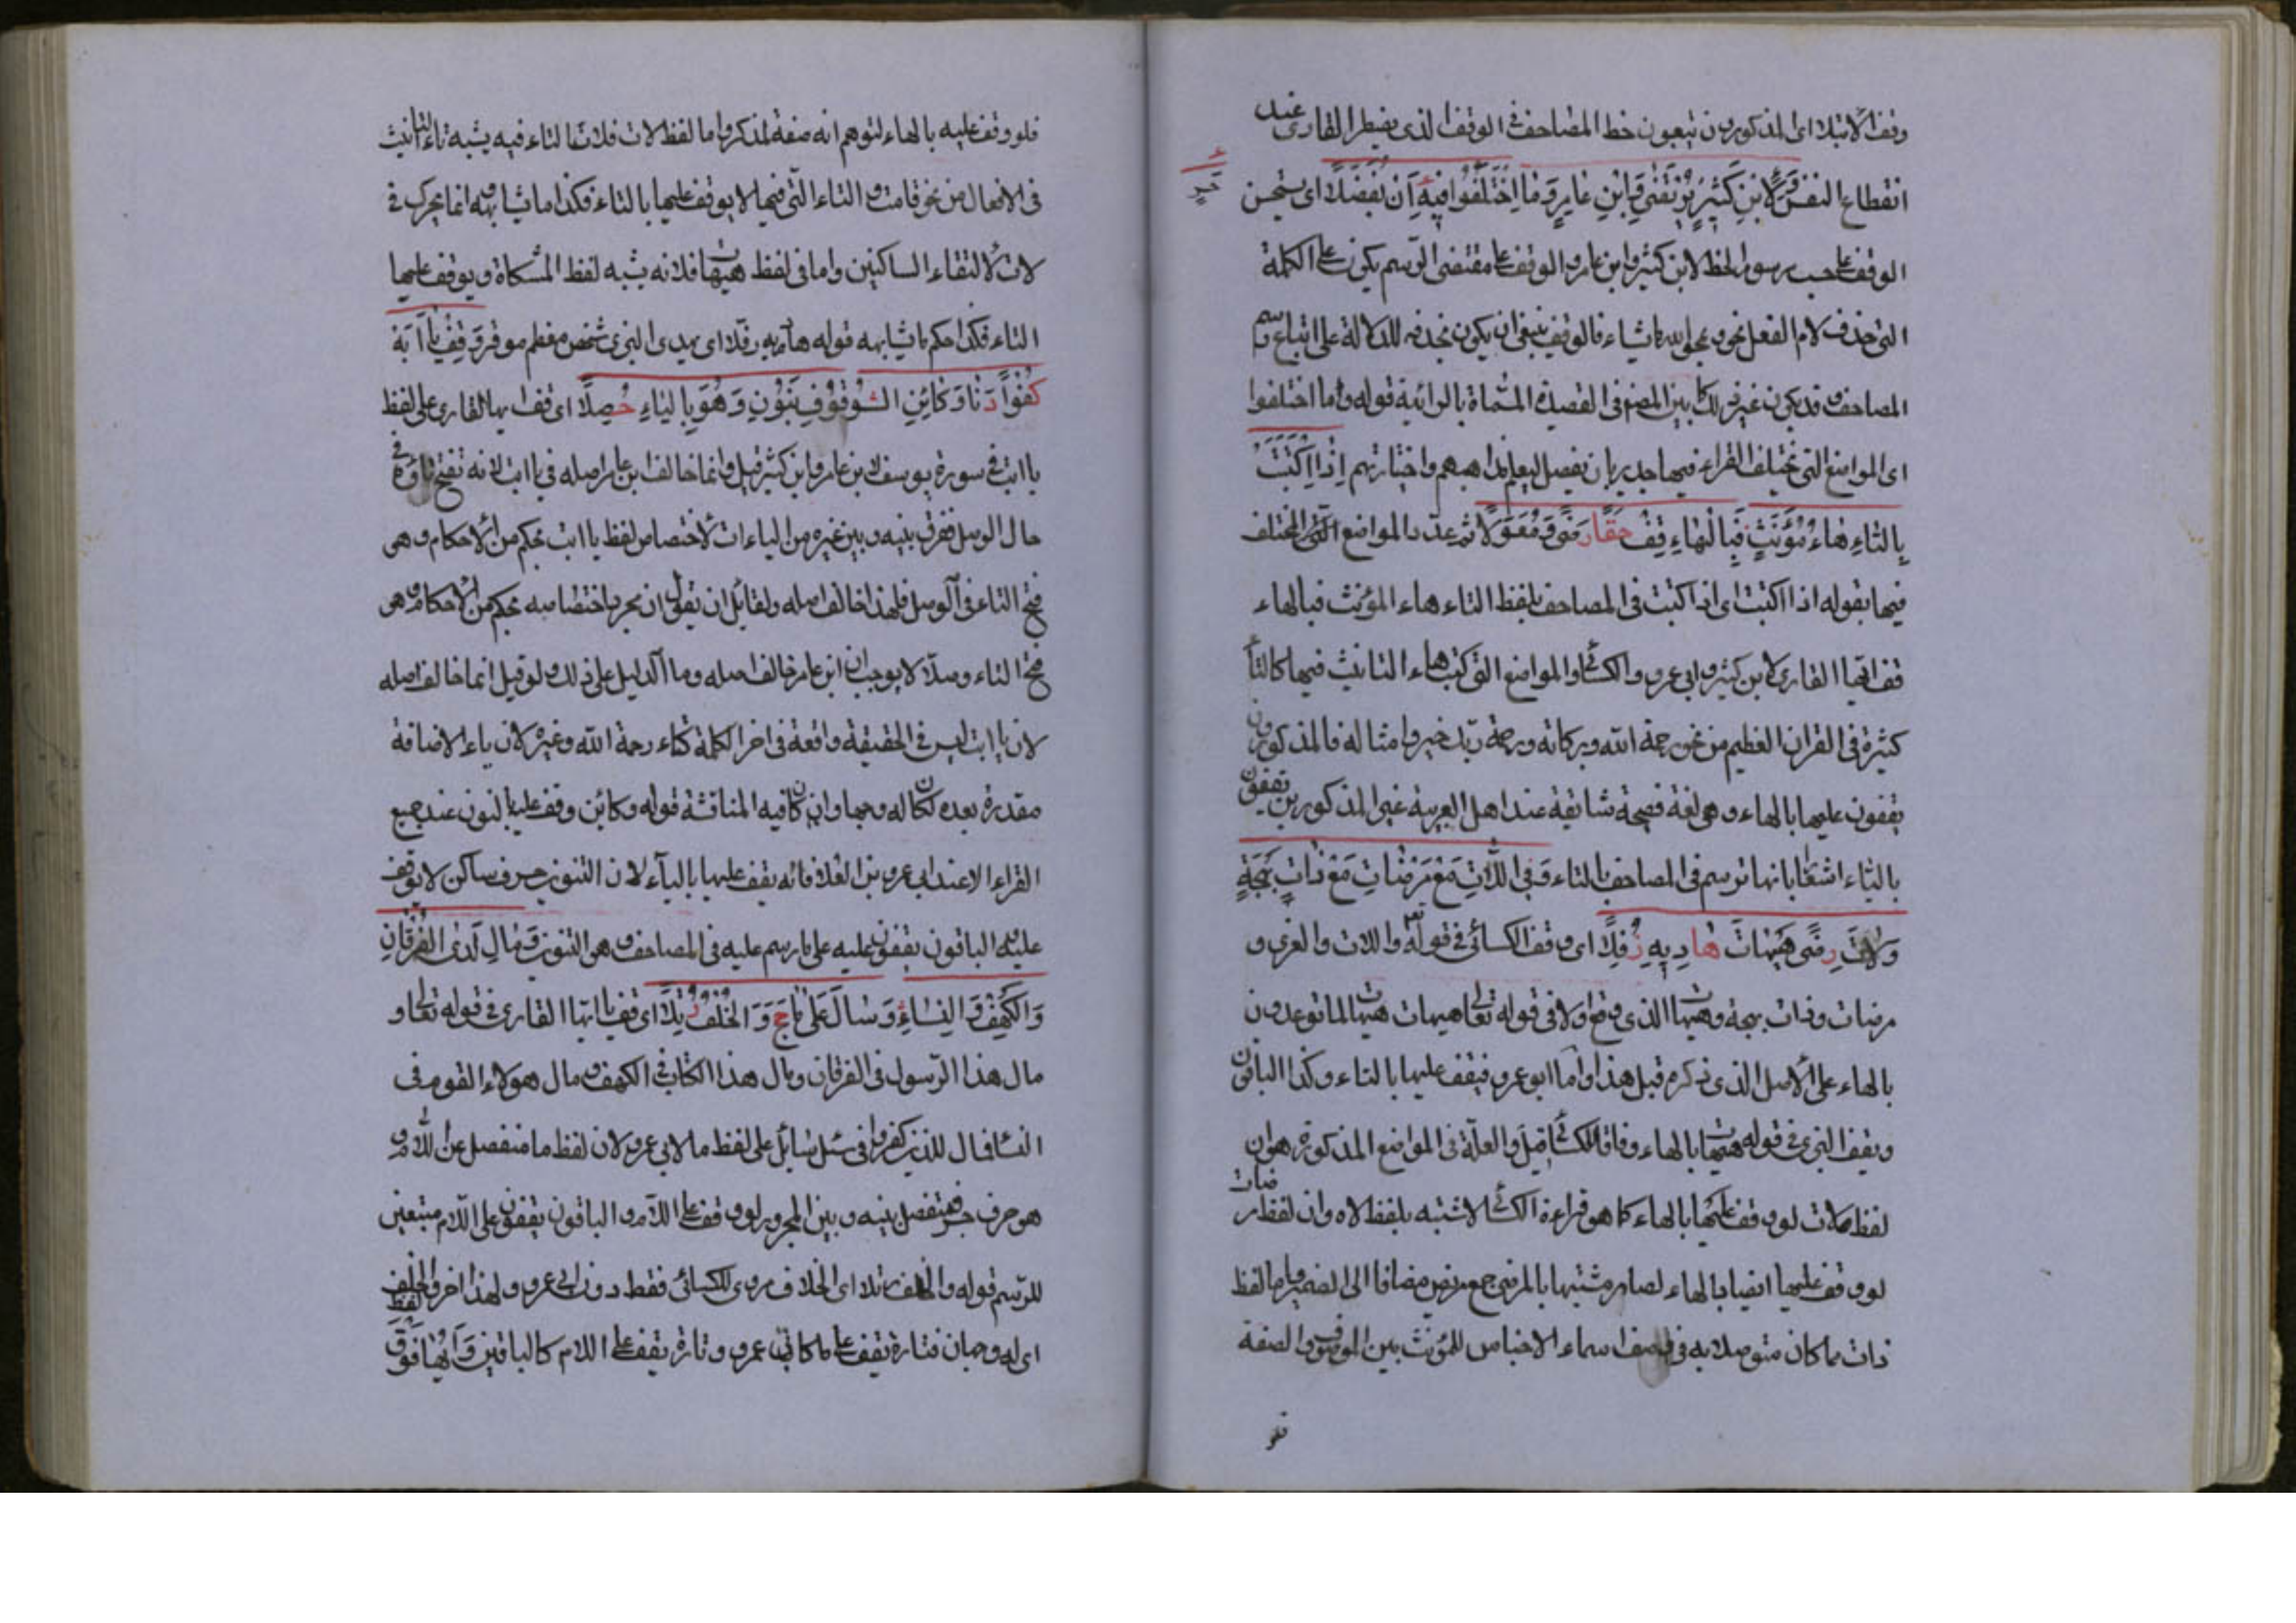 وقف الابتلا اى المذكورون يتبعون خط المصاحف فى الوقف الذى يضطر القارى عند
انقطاع النفس وَلِابْنِ كَثِيرٍ يُرْتَضَى وَابْنِ عَامِرٍ وَمَا اخْتَلَفُوا فِيهِ أَنْ يُفَصَّلَا اى يستحسن
الوقف على حسب رسوم الخط لابن كثير وابن عامر والوقف على مقتضى الرسم يكون على الكلمة
التى حذف لام الفعل نحو يمحو الله ما يشاء فالوقف ينبغى ان يكون بحذفه للدلالة على اتباع رسم
المصاحف وقد يكون غير ذلك كما بين المصنف فى القصيدة المسماة بالرائية قوله وما اختلفوا
اى المواضع التى يختلف القراء فيها جدير بان يفصل ليعلم مذاهبهم واختيارتهم إِذَا كُتِبَتْ
بِالتَّاءِ هَاءُ مُؤَنَّثٍ فَبِالْهَاءِ قِفْ حَقًّا رِضًى وَمُعَوَّلَا ثم عدد المواضع التى اختلف
فيها بقوله اذا كتبت اى اذا كتبت فى المصاحف بلفظ التاء هاء المؤنث فبالهاء
قف ايها القارى لابن كثير وابى عمرو والكسائى والمواضع التى كتب هاء التانيث فيها كالتاء
كثيرة فى القران العظيم من نحو رحمة الله وبركاته ورحمة ربك خير وامثاله فالمذكورون
يقفون عليها بالهاء وهى لغة فصيحة شائعة عند اهل العربية غير المذكورين يقفون
بالتاء اشعارا بانها ترسم فى المصاحف بالتاء وَفِى اللَّاتَ مَعْ مَرْضَاتِ مَعْ ذَاتَ بَهْجَةٍ
وَلَاتَ رِضًى هَيْهَاتَ هَادِيهِ رُفِّلَا اى وقف الكسائى فى قوله واللات والعزى و
مرضات وذات بهجة وهيهات الذى وقع اولا فى قوله تعالى هيهات هيهات لما توعدون
بالهاء على الاصل الذى ذكره قبل هذا واما ابو عمرو فيقف عليها بالتاء وكذا الباقون
ويقف البزى فى قوله هيهات بالهاء وفاقا للكسائى قيل والعلة فى المواضع المذكورة هو ان
لفظ لات لو وقف عليها بالهاء كما هو قراءة الكسائى لاشتبه بلفظ لاه وان لفظ مرضات
لو وقف عليها ايضا بالهاء لصار مشتبها بالمرضى جمع مريض مضافا الى الضمير واما لفظ
ذات مما كان متوصلا به فى وصف اسماء الاجناس للمؤنث بين الموصوف والصفة
فلو
فلو وقف عليه بالهاء لتوهم انه صفة لمذكر واما لفظ لات فلان التاء فيه يشبه تاء التانيث
فى الافعال من نحو قامت والتاء التى فيها لا يوقف عليها بالتاء فكذا ما شابهه انما يحرك فى
لات لالتقاء الساكنين واما فى لفظ هيهات فلانه يشبه لفظ المشكاة ويوقف عليها
التاء فكذا حكم ما شابهه قوله هاديه رفلا اى يهدى البزى شخص معظم موقر وَقِفْ يَا أَبَهْ
كُفْؤًا دَنَا وَكَأَيِّنِ الْوُقُوفُ بِنُونٍ وَهُوَ بِالْيَاءِ حُصِّلَا اى قف يها القارى على لفظ
يا ابت فى سورة يوسف لابن عامر وابن كثير قيل وانما خالف ابن عامر اصله فى يا ابت لانه تفتح تاؤه فى
حال الوصل ففرق بينه وبين غيره من التاءات لاختصاص لفظ يا ابت بحكم من الاحكام وهى
فتح التاء فى الوصل فلهذا خالف اصله ولقائل ان يقول ان مجرد اختصاصه بحكم من الاحكام وهى
فتح التاء وصلا لا يوجب ان ابن عامر خالف اصله وما الدليل على ذلك ولو قيل انما خالف اصله
لان يا ابت ليس فى الحقيقة واقعة فى اخر الكلمة كتاء رحمة الله وغيره لان ياء الاضافة
مقدرة بعده لكان له وجها وان كان فيه المناقشة قوله وكائن وقف عليه بالنون عند جميع
القراء الا عند ابى عمرو بن العلاء فانه يقف عليها بالياء لان التنوين حرف ساكن لا يوقف
عليه الباقون يقفون عليه على ما رسم عليه فى المصاحف وهو التنوين وَمَالِ لَدَى الْفُرْقَانِ
وَالْكَهْفِ وَالنِّسَاءِ وَسَالَ عَلَى مَا حَجَّ وَالْخُلْفُ رُتِّلَا اى قف يا ايها القارى فى قوله تعالى و
مال هذا الرسول فى الفرقان ومال هذا الكتاب فى الكهف ومال هولاء القوم فى
النساء فمال للذين كفروا فى سئل سائل على لفظ ما لابى عمرو لان لفظ ما منفصل عن اللام و
هو حرف جر فينفصل بينه وبين المجرور لو وقف على اللام والباقون يقفون على اللام متبعين
للرسم قوله والخلف رتلا اى الخلاف مروى للكسائى فقط دون ابى عمرو ولهذا اخر والخلف لفظ
اى له وجهان فتارة يقف على ما كابى عمرو وتارة يقف على اللام كالباقين وَيَا أَيُّهَا فَوْقَ